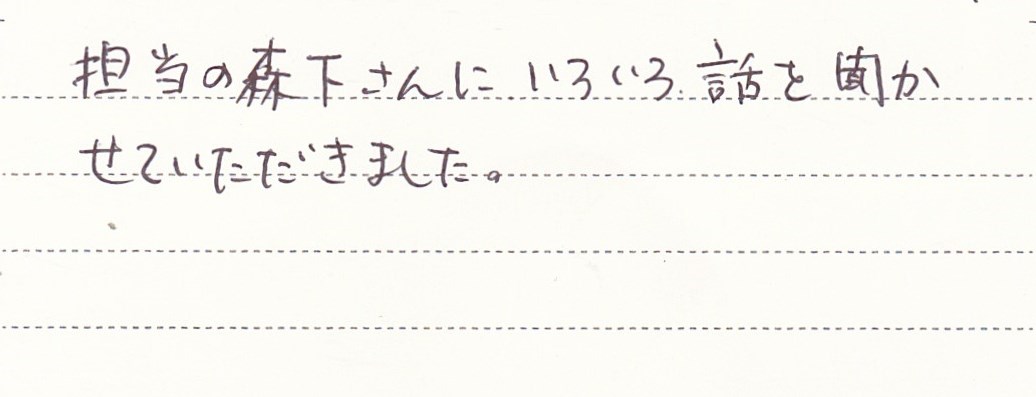 担当の森下さんにいろいろ話を聞か
せていただきました。